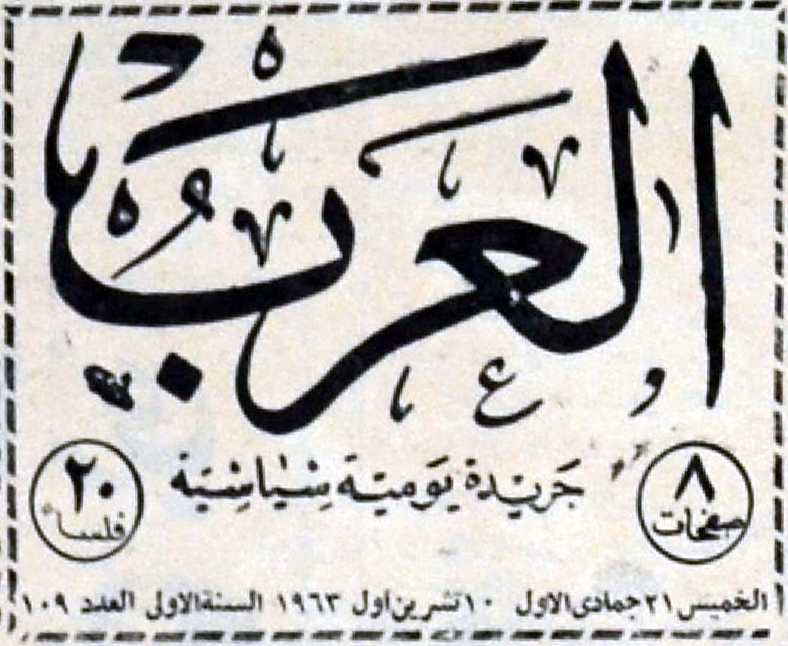 العرب
جريدة يومية سياسية
٨ صفحات
٢٠ فلسا
الخميس ٢١ جمادى الاول ١٠ تشرين اول ١٩٦٣ السنة الاولى العدد ١٠٩